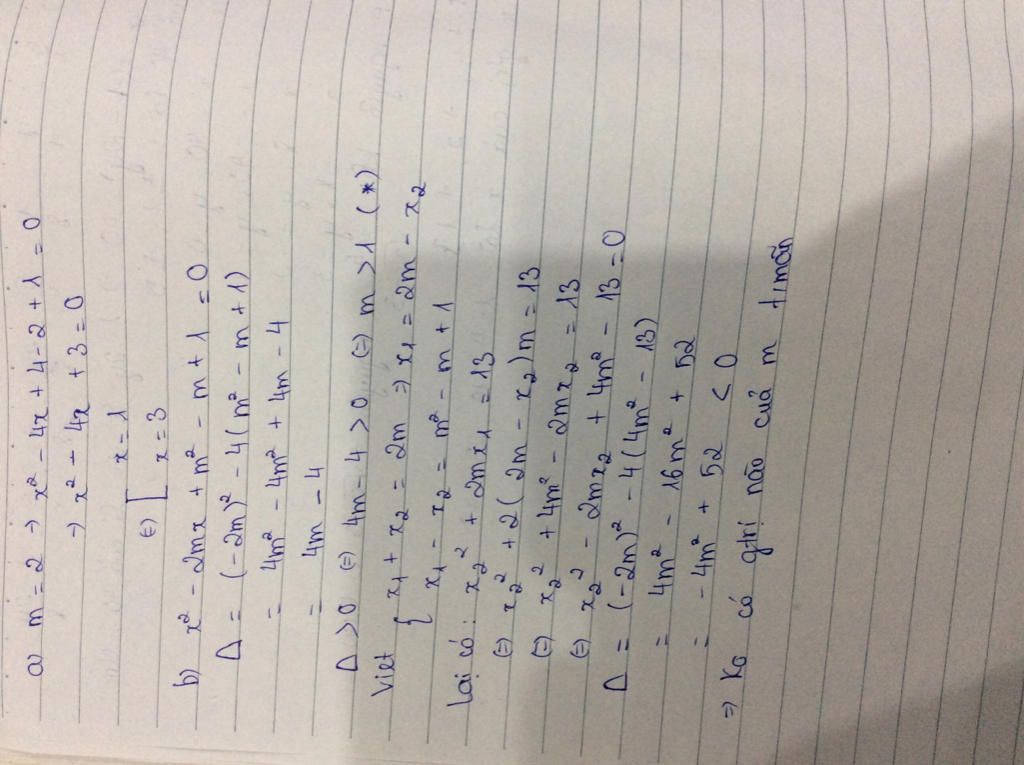 a) m = 2 → x² - 4x + 4 - 2 + 1 = 0
→ x² - 4x + 3 = 0
⇔ [ x = 1
x = 3
b) x² - 2mx + m² - m + 1 = 0
Δ = (-2m)² - 4(m² - m + 1)
= 4m² - 4m² + 4m - 4
= 4m - 4
Δ > 0 ⇔ 4m - 4 > 0 ⇔ m > 1 (*)
Viet { x₁ + x₂ = 2m ⇒ x₁ = 2m - x₂
x₁ - x₂ = m² - m + 1
Lại có : x₂² + 2mx₁ = 13
⇔ x₂² + 2(2m - x₂)m = 13
⇔ x₂² + 4m² - 2mx₂ = 13
⇔ x₂² - 2mx₂ + 4m² - 13 = 0
Δ = (-2m)² - 4(4m² - 13)
= 4m² - 16m² + 52
= -4m² + 52 < 0
⇒ Ko có gtrị nào cuả m tmãn